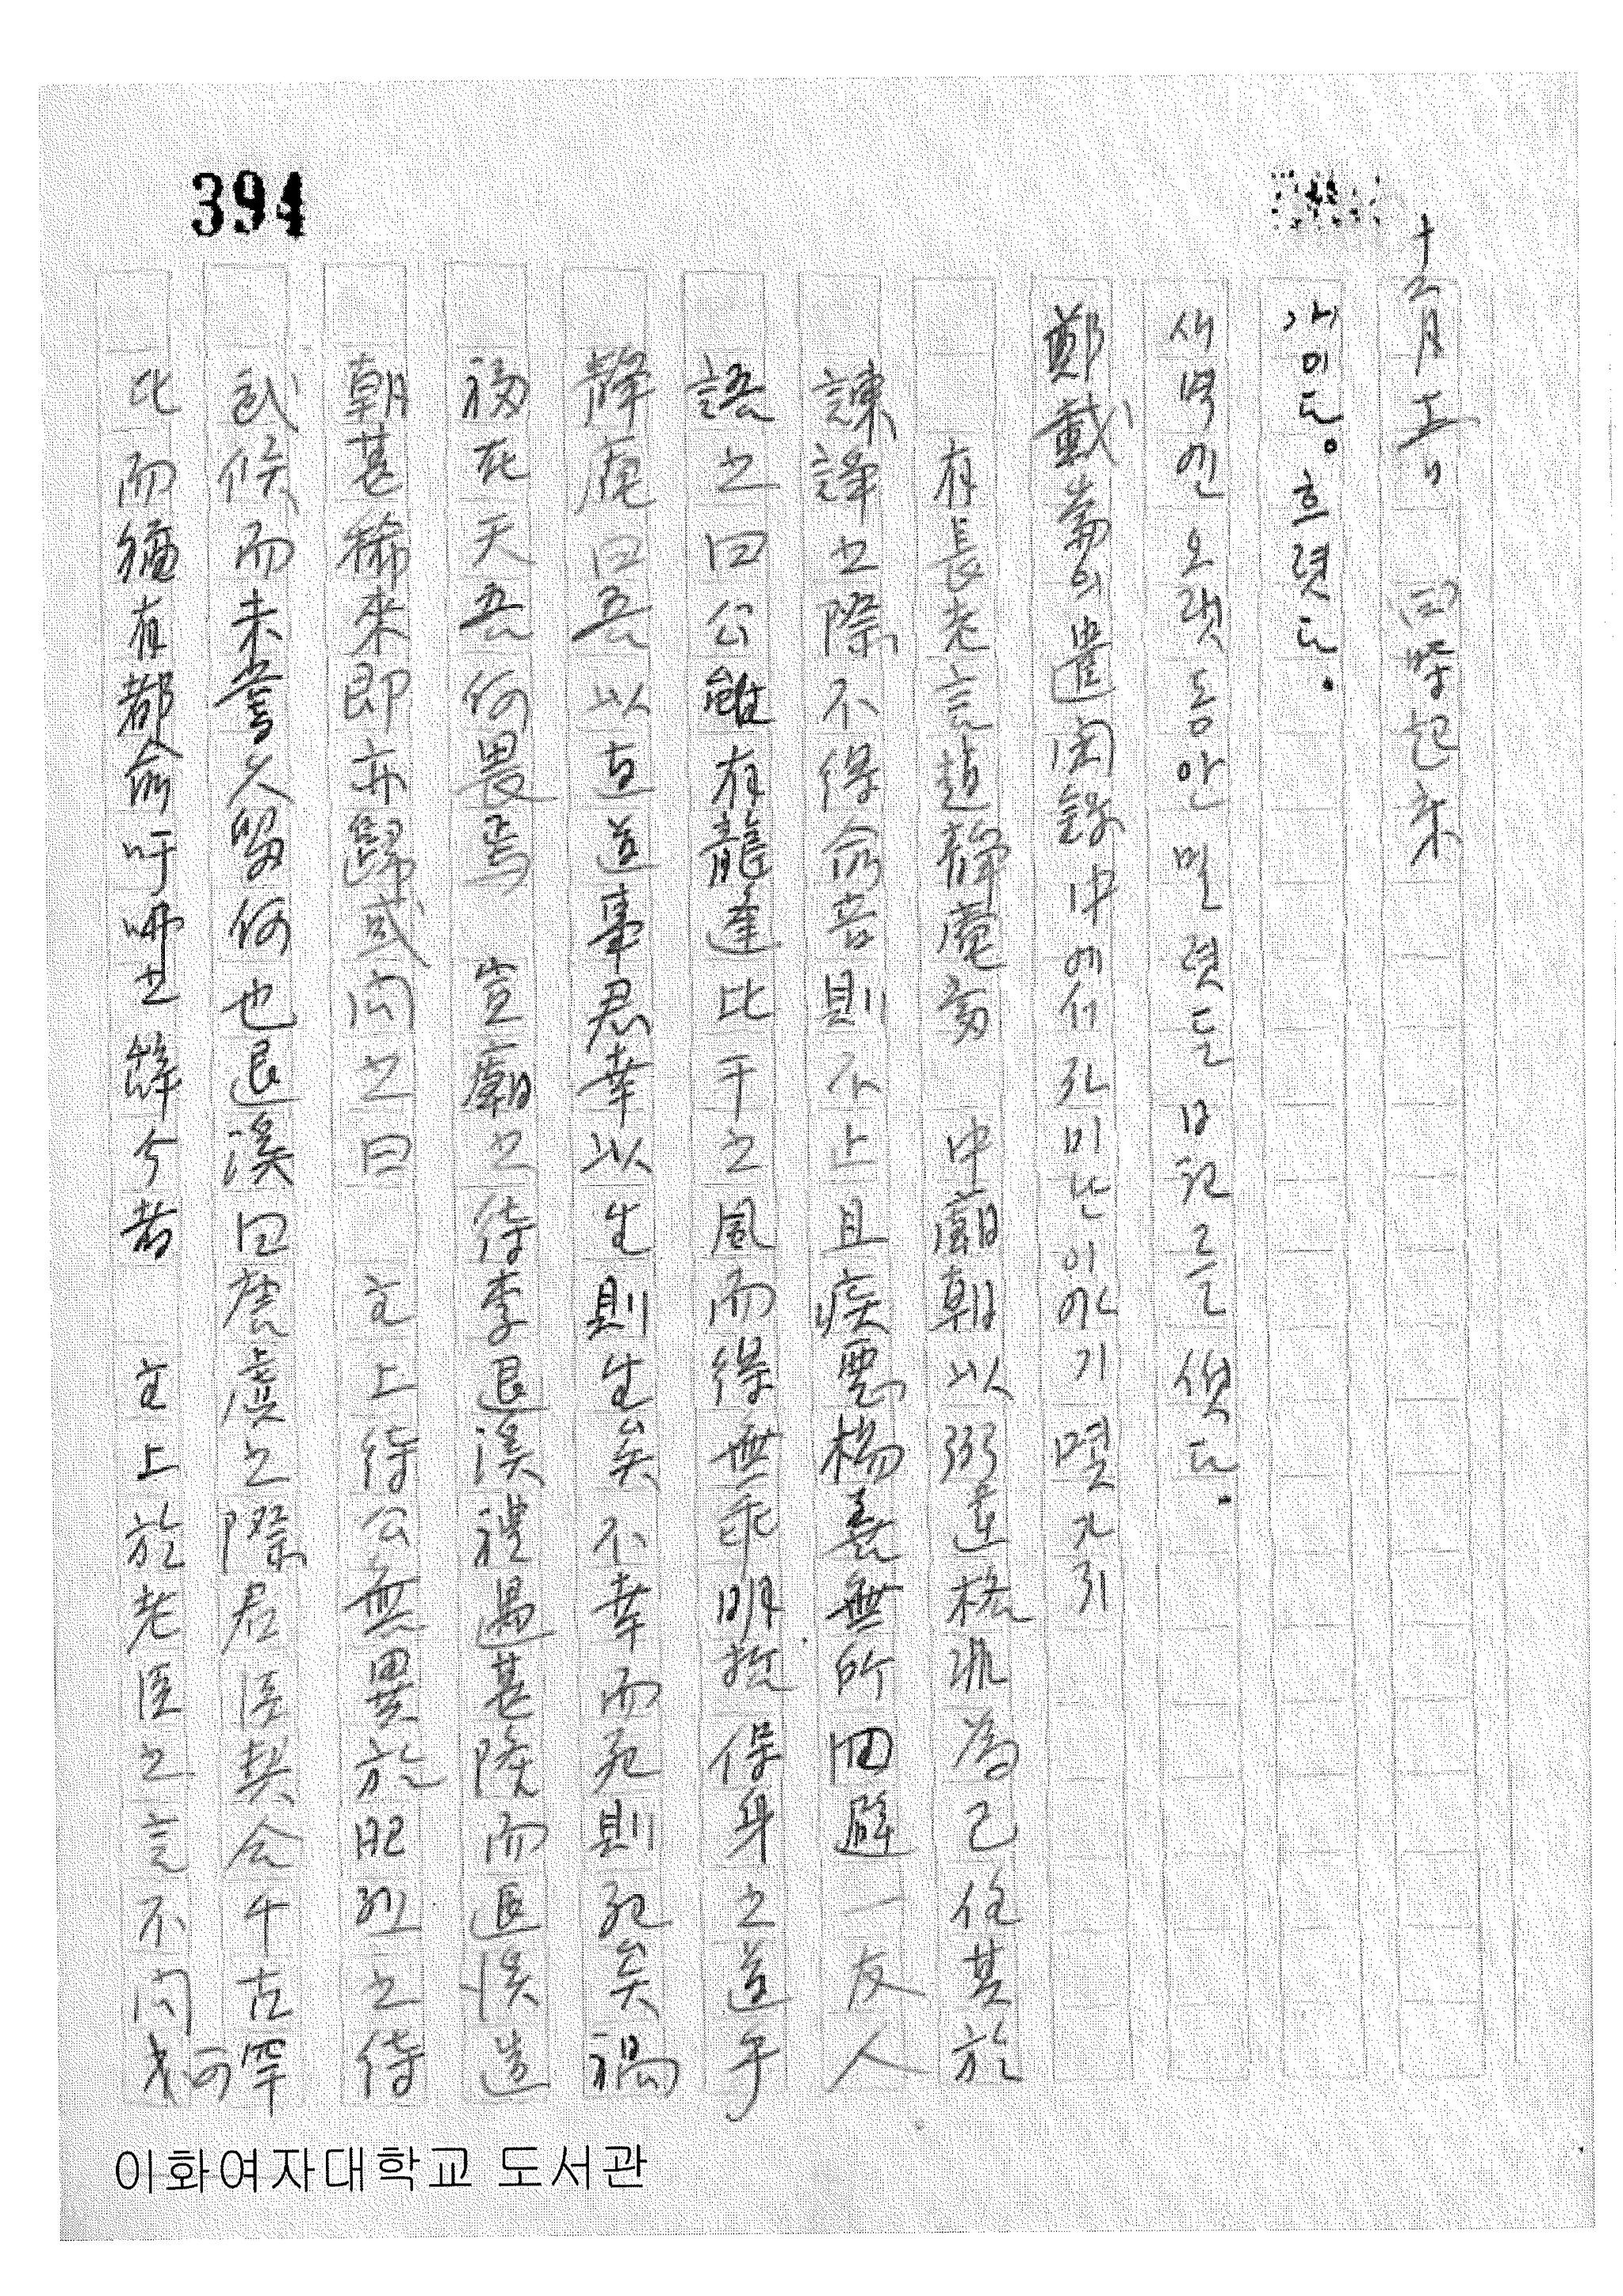 394
十二月 五日 四時起来
개이드。흐렷드.
새벽엔 오랫동안 밀렷든 日記를 썻드.
鄭載崙의 遣閑錄中에서 자미난 이야기 몇가지
有長老言趙靜庵爲 中廟朝以弼違格非為己任其於
諫諍之際不得兪音則不止且疾惡揚善無所回避一友人
語之曰公雖有龍逢比干之風而得無乖明哲保身之道乎
靜庵曰吾以直道事君幸以生則生矣不幸而死則死矣禍
福在天吾何畏焉 宣廟之待李退溪禮遇甚隆而退溪造
朝甚稀來即亦歸或问之曰 主上待公無異於昭烈之待
武候而未嘗久留何也退溪曰唐虞之際君臣契会千古罕
此而猶有都兪吁咈之辭今者 主上於老臣之言不问可